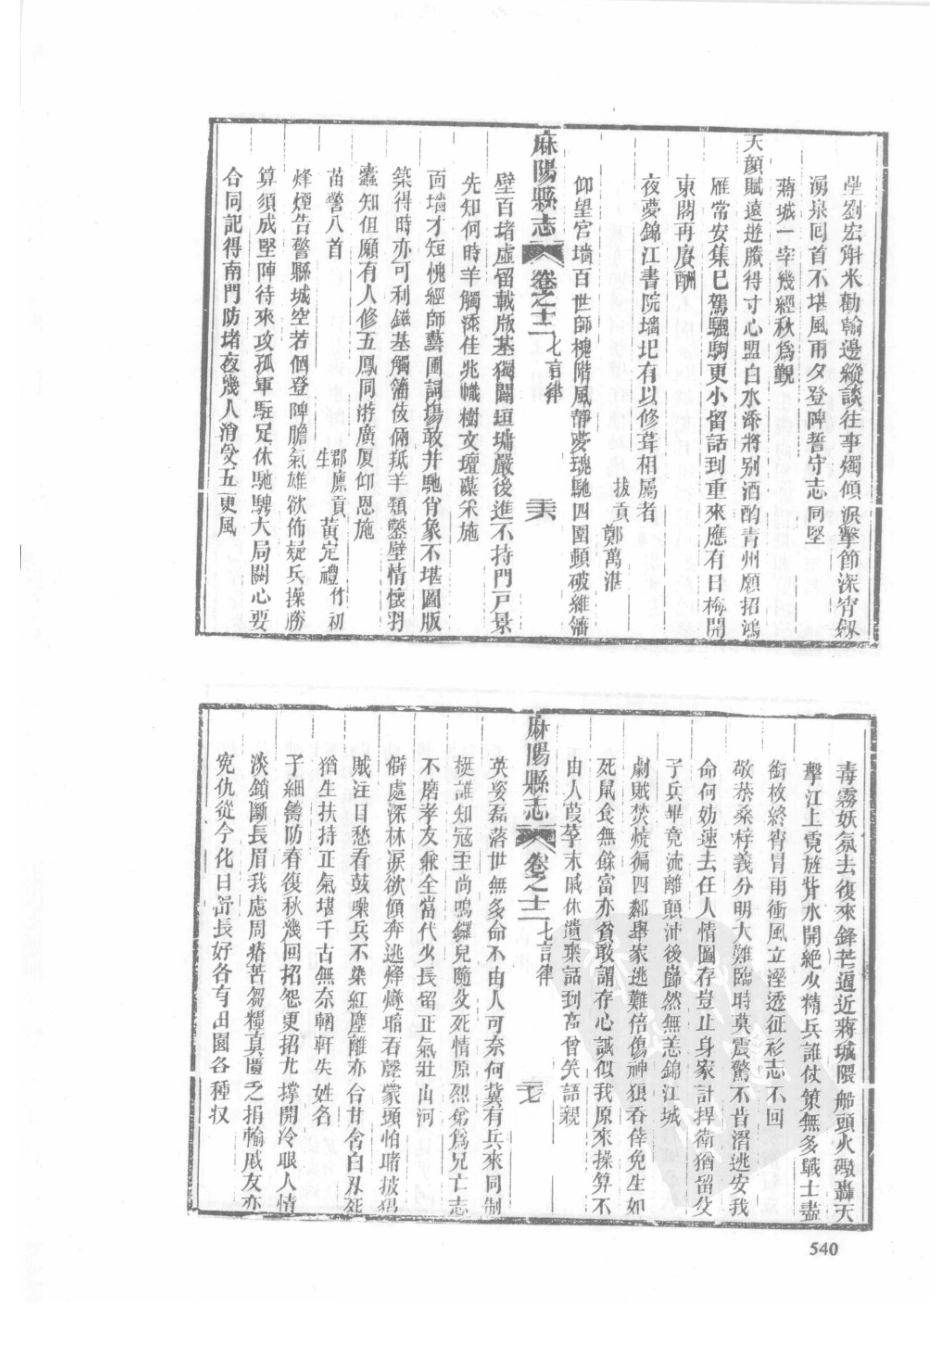 壘劉宏斛米勸輸邊縱談往事燭傾淚擊節深宵
湧泉囘首不堪風雨夕登陴誓守志同堅
蔣城一宰幾經秋爲覲
天顏賦遠遊賸得寸心盟白水添將别酒酌青州願招鴻
雁常安集已駕驪駒更小留話到重來應有日梅開
東閣再賡酬
夜夢錦江書院墻圯有以修葺相屬者
拔貢 鄭萬湛
仰望宮墻百世師槐階風靜夢魂馳四圍頓破籬籬
麻陽縣志 卷之十二 七言律 三六
壁百堵虛留載版基獨闢垣墉嚴後進不持門戸景
先知何時羊觸添佳兆幟樹文壇藻采施
面墻才短愧經師藝圃詞塲敢井馳肯象不堪圖版
築得時亦可利鎡基觸藩伎倆羝羊類鑿壁情懷羽
蠹知但願有人修五鳳同游廣厦仰恩施
苗警八首
郡廪貢生 黃定禮 竹初
烽煙告警縣城空若個登陴膽氣雄欲佈疑兵操勝
算須成堅陣待來攻孤軍駐足休馳騁大局關心要
合同記得南門防堵夜幾人消受五更風
毒霧妖氛去復來鋒芒逼近蔣城隈船頭火礮轟天
擊江上霓旌背水開絶少精兵誰仗策無多戰士盡
銜枚終宵冒雨衝風立溼透征衫志不回
敬恭桑梓義分明大難臨時莫震驚不肯潛逃安我
命何妨速去任人情圖存豈止身家計捍衛猶留父
子兵畢竟流離顛沛後巋然無恙錦江城
劇賊焚燒徧四鄰舉家逃難倍傷神狼吞倖免生如
死鼠食無餘富亦貧敢謂存心誠似我原來操算不
由人葭莩末戚休遺棄話到高曾笑語親
麻陽縣志 卷之十二 七言律 三七
英姿磊落世無多命不由人可奈何冀有兵來同制
梃誰知冠至尚鳴鑼兒隨父死情原烈弟爲兄亡志
不磨孝友兼全當代少長留正氣壯山河
僻處深林淚欲傾奔逃烽燧暗吞聲蒙頭怕堵披猖
賊注目愁看鼓譟兵不染紅塵離亦合甘含白刄死
猶生扶持正氣堪千古無奈輶軒失姓名
子細籌防春復秋幾回招怨更招尤撐開冷眼人情
淡鎖斷長眉我慮周瘡苦芻糧真匱乏捐輸戚友亦
寃仇從今化日舒長好各有田園各種收
540